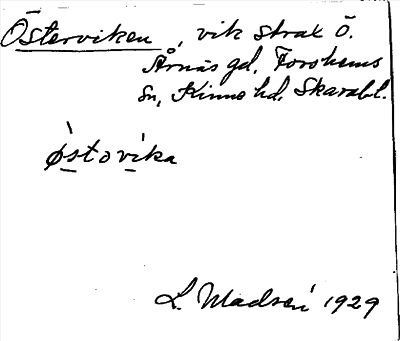 Österviken, vik strax ö.
Årnäs gd, Forshems
sn, Kinne hd. Skarab.l.
østovika
L. Madsén 1929